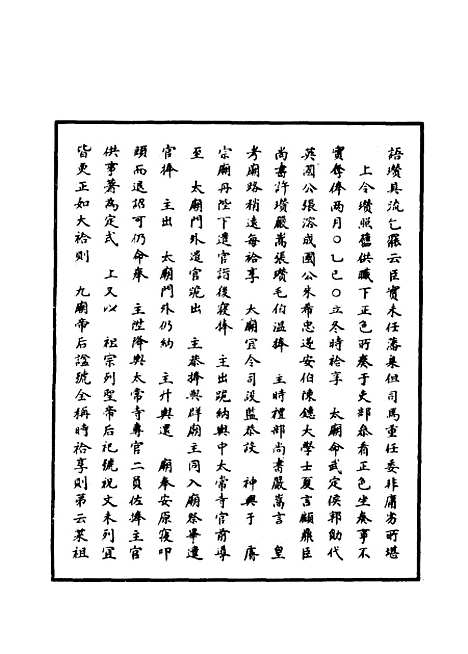 語瓚具流乞罷云臣實未任藩臬但司馬重任委非庸劣所堪
上令瓚照舊供職下正色所奏于吏部參看正色坐奏事不
實奪俸兩月○乙巳○立冬時祫享 太廟命武定侯郭勛代
英國公張溶成國公朱希忠遂安伯陳鏸大學士夏言顧鼎臣
尚書許瓚嚴嵩張瓚毛伯溫捧 主時禮部尚書嚴嵩言 皇
考廟路稍遠每祫享 太廟宜令司設監恭設 神輿于 廟
宗廟丹陛下遣官詣後寢捧 主出跪納輿中太常寺官前導
至 太廟門外遣官跪出 主恭捧與群廟主同入廟祭畢遣
官捧 主出 太廟門外仍納 主廾輿還 廟奉安原寢叩
頭而退詔可仍命奉 主陞降輿太常寺專官二員佐捧主官
供事著為定式 上又以 祖宗列聖帝后祀號祝文未列宜
皆更正如大祫則 九廟帝后諡號全稱時祫享則第云某祖